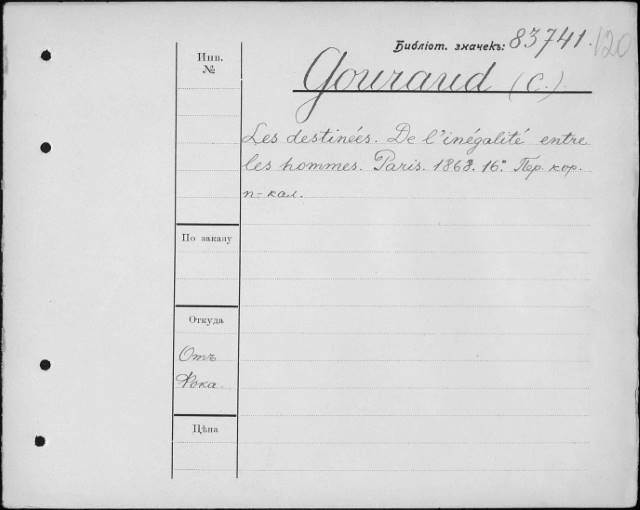 Библіот. значекъ: 83741. 120
Инв.
№
Gouraud (C.).
Les destinées. De l'inégalité entre
les hommes. Paris. 1868. 16°. Пер. кор.
п-кал.
По заказу
Откуда
Отъ
Фока.
Цѣна